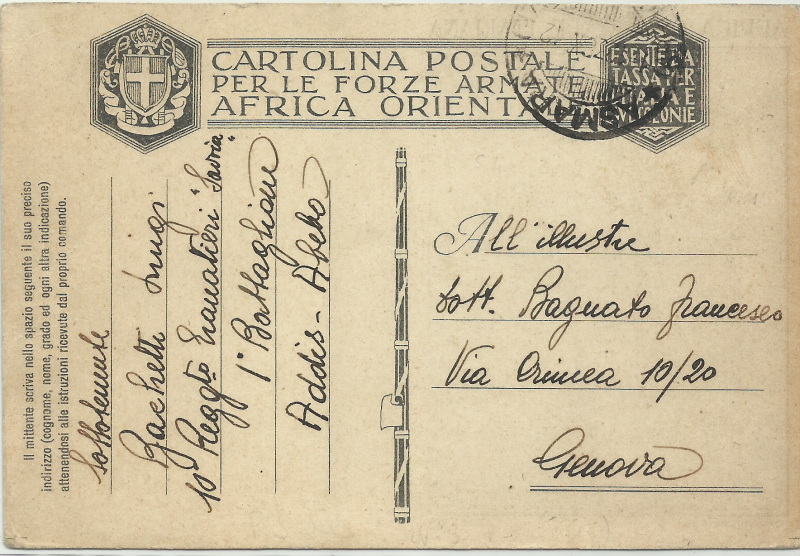 CARTOLINA POSTALE
PER LE FORZE ARMATE
AFRICA ORIENTALE
ESENTE DA
TASSA PER
ITALIA E
COLONIE
ASMARA
Il mittente scriva nello spazio seguente il suo preciso
indirizzo (cognome, nome, grado ed ogni altra indicazione)
attenendosi alle istruzioni ricevute dal proprio comando.
Sottotenente
Luigi
10° Regg.to Granatieri "Savoia"
1° Battaglione
Addis-Abeba
All'illustre
Dott. Bagnato Francesco
Via Crimea 10/20
Genova